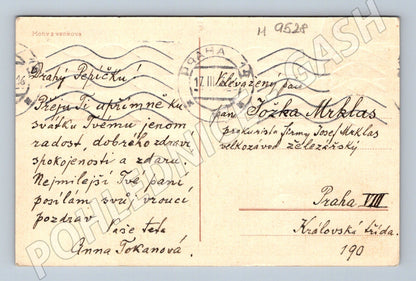 Motiv z venkova
M 9528
PRAHA
17.III
Drahý Pepíčku!
Přeju Ti upřímně ku
svátku Tvému jenom
radost, dobrého zdraví
spokojenosti a zdaru.
Nejmilejší Tvé paní
posílám svůj vroucí
pozdrav
Vaše teta
Anna Tokanová.
Velevážený pan
pan Jožka Mrklas
prokurista firmy Josef Mrklas
velkozávod železářský
Praha VIII
Královská třída.
190